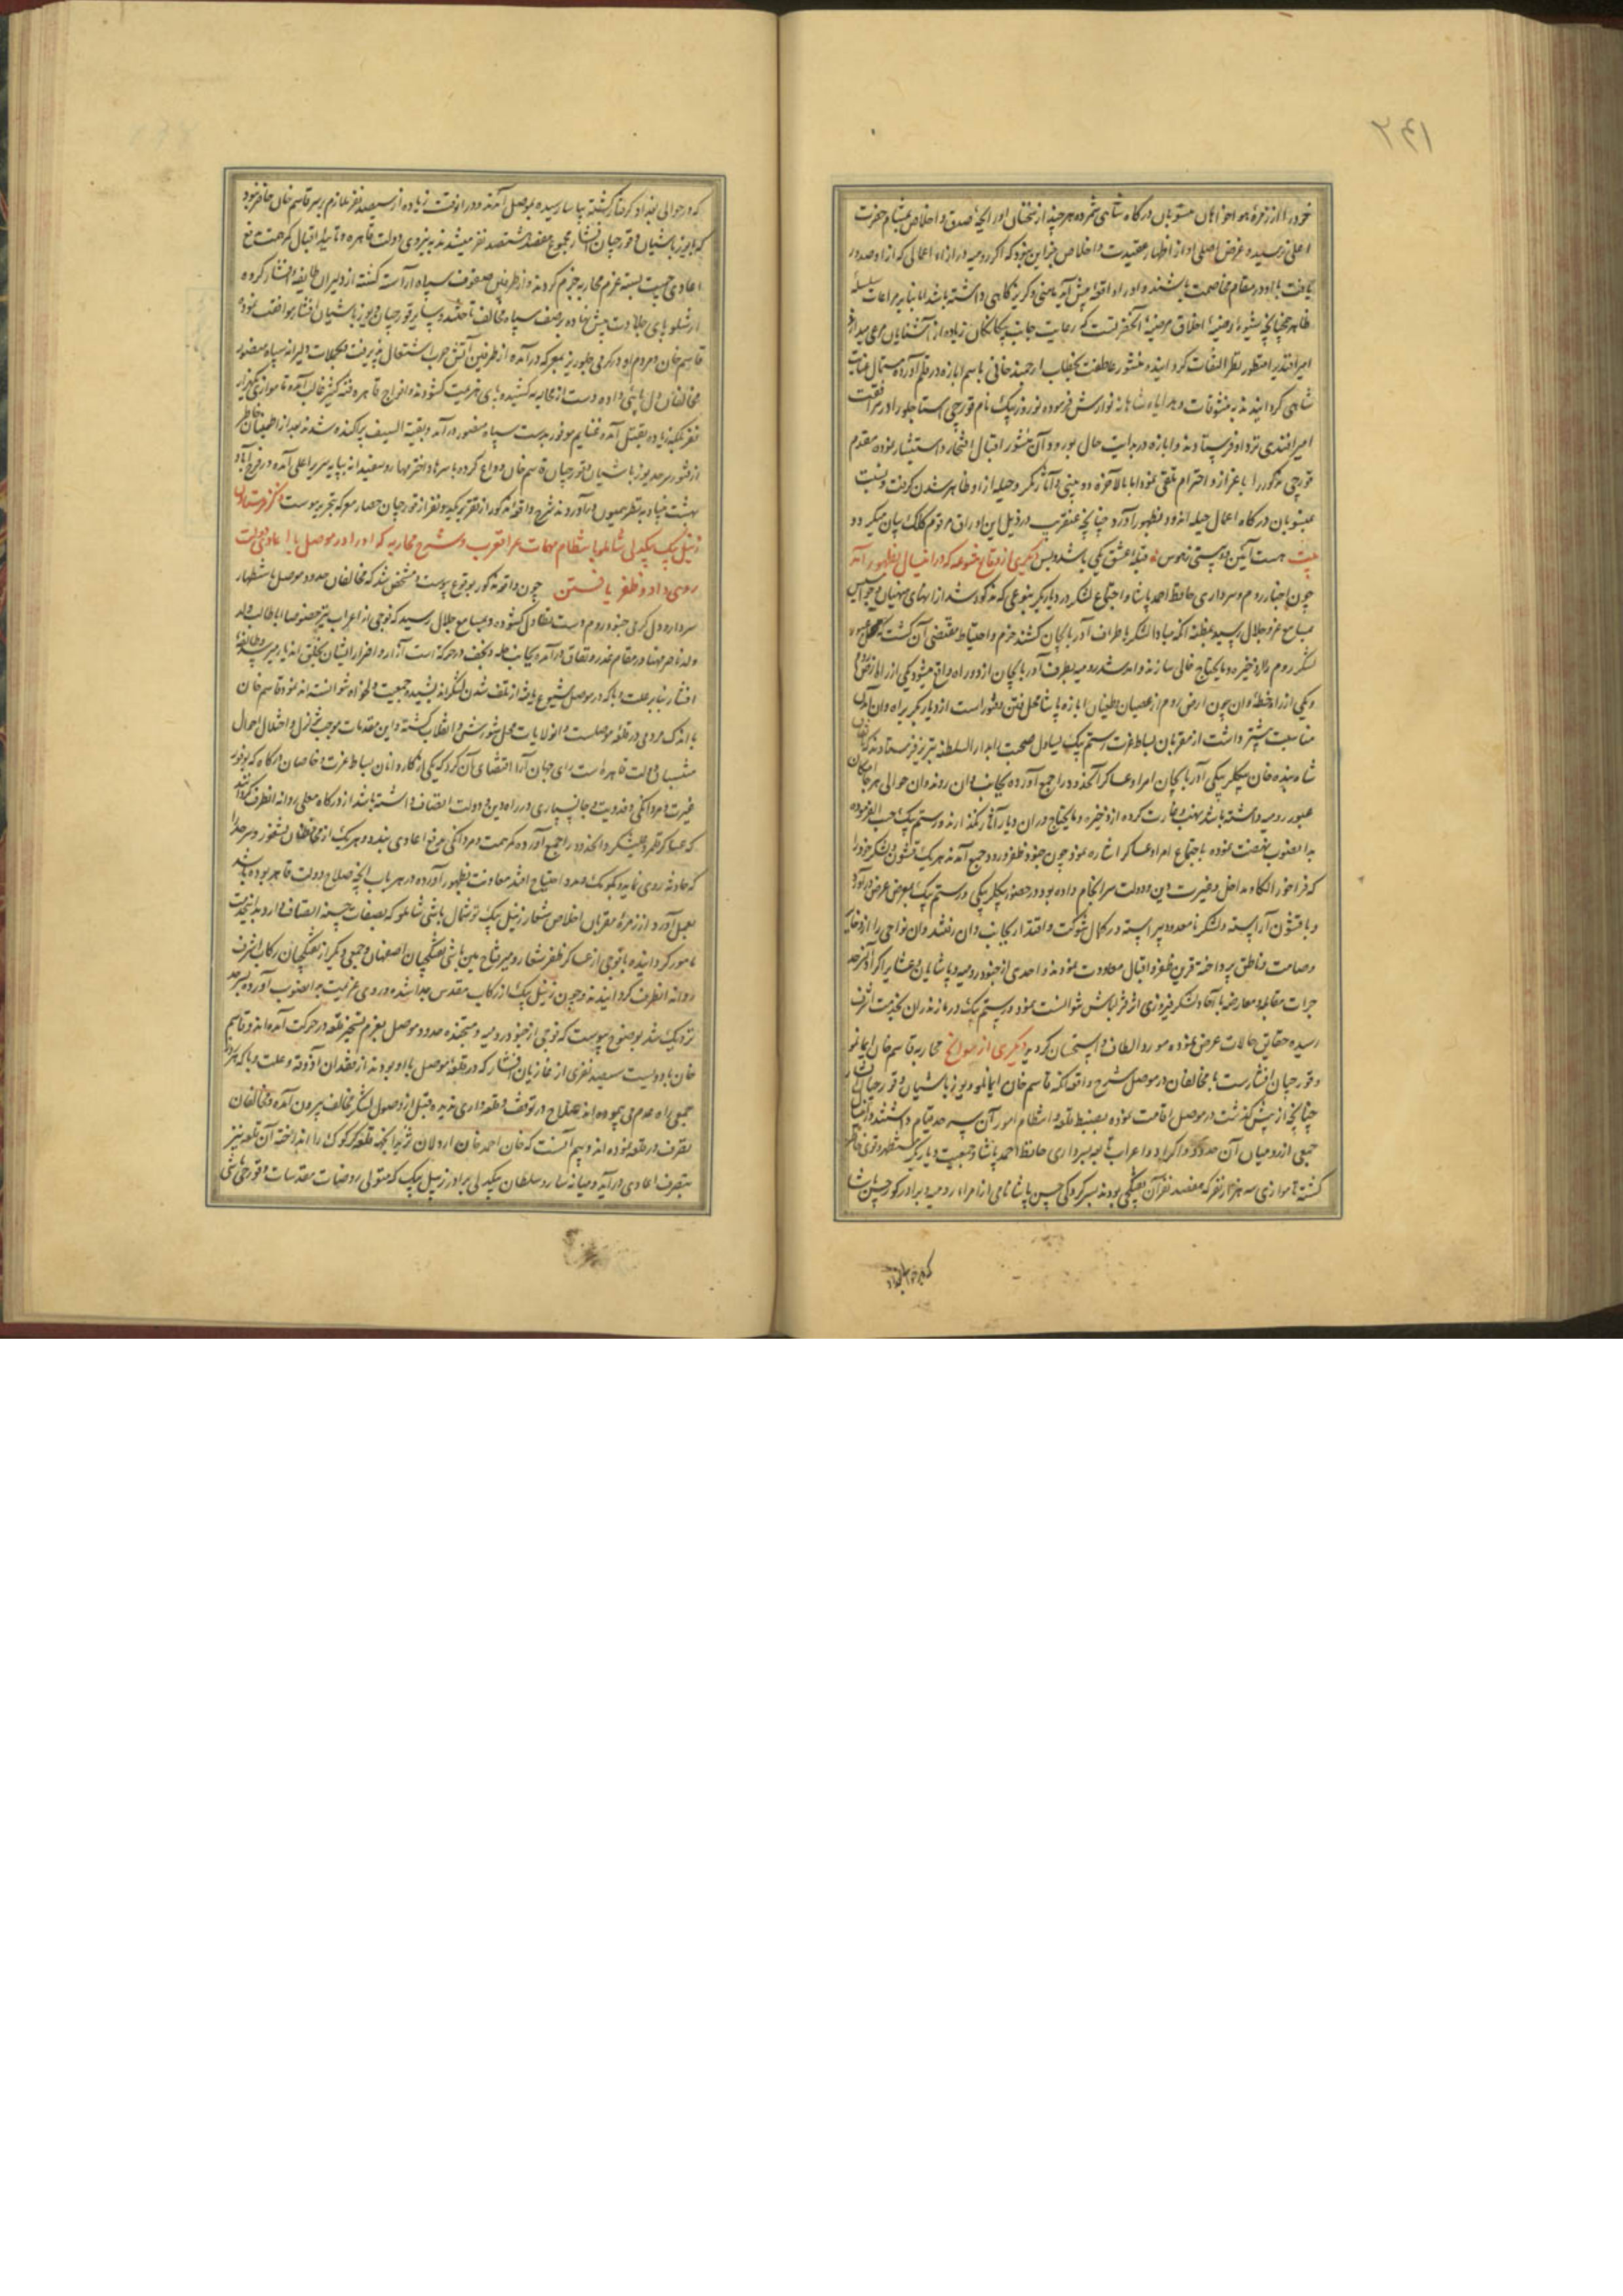 خود را از زمرهٔ هواخواهان منسوبان درگاه شاهی شمرده هر چند از سخنان او رایحهٔ صدق و اخلاص بمشام حضرت
اعلی نرسیده و غرض اصلی او از اظهار عقیدت و اخلاص جز این نبود که اگر رومیه در ازاء اعمالی که از او صدور
یافت با او در مقام مخاصمت باشند و او را واقعهٔ پیش آید مأمنی و گریزگاهی داشته باشد اما بنابر مراعات سلسلهٔ
ظاهر چنانچه شیوهٔ مرضیهٔ اخلاق آنحضرتست که رعایت جانب بیگانگان زیاده از آشنایان مرعی میدارند
امیر اقتدی را منظور نظر التفات گردانیده منشور عاطفت بخطاب ارجمند خانی باسم ابازه در قلم آورده مستمال عنایت
شاهی گردانیدند به تشریفات و هدایاء شاهانه نوازش فرموده نوروز بیک نام قورچی استاجلو را در مرافقت
امیر اقتدی نزد او فرستادند و ابازه در بدایت حال بورود آن منشور اقبال افتخار و استبشار نموده مقدم
قورچی مذکور را باعزاز و احترام تلقی نموده اما بالاخره دو بینی و آثار مکر و حیله از او ظاهر شدن گرفت و نسبت
بمنسوبان درگاه اعمال حیله اندود بظهور آورد چنانچه عنقریب در ذیل این اوراق مرقوم کلک بیان میگردد
بیت هست آئین دو بینی ز هوس قبلهٔ عشق یکی باشد و بس دیگری از وقایع متنوعه که در این سال بظهور آمد
چون اخبار روم و سرداری حافظ احمد پاشا و اجتماع لشکر در دیار بکر بنوعی که مذکور شد از انهای منهیان و جواسیس
بمسامع عز و جلال رسید بمظنه آنکه مبادا لشکر باطراف آذربایجان کشند حزم و احتیاط مقتضی آن گشت که محل عبور
لشکر روم را از ذخیره و مایحتاج خالی سازند و آمد شد رومیه بطرف آذربایجان از دو راه واقع میشود یکی از راه ارض روم
و یکی از راه خطهٔ وان چون ارض روم از عصیان و طغیان ابازه پاشا محل فتن و شور است از دیار بکر براه وان آمدن
مناسبت بیشتر داشت از مقربان بساط عزت رستم بیک یساول صحبت را بدار السلطنه تبریز فرستادند که باتفاق
شاه بنده خان بیگلربیگی آذربایجان امرا و عساکر آنحدود را جمع آورده بجانب وان روند و آن حوالی هر جا مکان
عبور رومیه داشته باشد نهب و غارت کرده از ذخیره و مایحتاج در آن دیار آثار نگذارند و رستم بیک حسب الفرموده
بدانصوب نهضت نموده باجتماع امرا و عساکر اشاره نمود چون جنود ظفر ورود جمع آمدند هر یک قشون و لشکر خود را
که فراخور الکاء و مداخل و غیرت دین و دولت سرانجام داده بود در حضور بیگلربیگی و رستم بیک بمعرض عرض درآورد
و با قشون آراسته و لشکر نامعدود پیراسته در کمال شوکت و اقتدار بجانب وان رفتند و آن نواحی را از ذخایر
و صامت و ناطق پرداخته قرین ظفر و اقبال معاودت نمودند و احدی از جنود رومیه و پاشایان و عشایر اکراد آنسرحد
جرات مقابله و معارضه با آحاد لشکر فیروزی اثر قزلباش نتوانست نمود و رستم بیک در مازندران بخدمت اشرف
رسیده حقایق حالات عرض نموده مورد الطاف و استحسان گردید دیگری از سوانح محاربه قاسم خان ایمانلو
و قورچیان افشارست با مخالفان در موصل شرح واقعه آنکه قاسم خان ایمانلو و یوزباشیان و قورچیان افشار
چنانچه از پیش گذشت در موصل اقامت نموده بضبط قلعه و انتظام امور آن سرحد قیام داشتند در این سال
جمعی از رومیان آن حدود و اکراد و اعراب تابعه بسرداری حافظ احمد پاشا و جمعیت دیار بکر مستظهر و قوی خاطر
گشته تا موازی سه هزار نفر که هفتصد نفر آن تفنگچی بودند بسرکردگی حسین پاشا نامی از امراء رومیه و برادر کور حسین پاشا
که در حوالی بغداد
که در حوالی بغداد گرفتار گشته بیاسا رسیده بموصل آمدند و در آنوقت زیاده از سیصد نفر ملازم بر سر قاسم خان حاضر نبود
که با یوزباشیان و قورچیان افشار مجموع هفتصد هشتصد نفر میشدند به نیروی دولت قاهره و تأیید اقبال کمر همت بدفع
اعادی جمعیت بسته عزم محاربه جزم کردند و از طرفین صفوف سپاه آراسته گشته از دلیران طایفه افشار کروه
ارشلو پای جلادت پیش نهاده بر صف سپاه مخالف تاختند و سایر قورچیان و یوزباشیان افشار موافقت نموده
قاسم خان و مردم او در گرمی جلوریز بمعرکه درآمده از طرفین آتش حرب اشتعال پذیرفت و بحملات دلیرانه سپاه منصور
مخالفان دل بای داده دست از محاربه کشیده بپای هزیمت گشودند و افواج قاهره فئه کثیر غالب آمده تا موازی یکهزار
نفر بلکه زیاده بقتل آمد و غنایم موفور بدست سپاه منصور درآمد و بقیة السیف پراکنده شدند بعد از اطمینان خاطر
از فتور سرحد یوزباشیان و قورچیان قاسم خان را وداع کرده با سرها و اختر مها روسفیدانه بپایه سریر اعلی آمده در فرح آباد
بهشت بنیاد بنظر همیون درآوردند شرح واقعه مذکور از تقریر یکدو نفر از قورچیان حضار معرکه بتحریر پیوست ذکر فرستادن
زینل بیک بیگدلی شاملو بانتظام مهمات عراق عرب و شرح محاربه که او را در موصل با اعادی دولت
روی داد و ظفر یافتن چون واقعه مذکور بوقوع پیوست و مشخص شد که مخالفان حدود موصل باستظهار
سردار و دل گرمی جنود روم دست تطاول گشوده و بمسامع جلال رسید که فوجی از اعراب نیز خصوصا ابا طالب ولد
ولد ناصر مهنا در مقام غدر و نفاق درآمده بجانب حله و نجف در حرکة است آزار و اضرار ایشان بخلق الله میرسد و طایفه
افشار بنابر علت وبا که در موصل شیوع یافته از تلف شدن لشکر اندیشیده جمعیت دلخواه نتوانسته اند نمود قاسم خان
با اندک مردمی در قلعه موصلست و آنولایات محل شورش و انقلاب گشته و این مقدمات موجب تزلزل و اختلال احوال
منتسبان دولت قاهره است رای جهان آرا اقتضای آن کرد که یکی از کاروانان بساط عزت و خاصان درگاه که بوفور
غیرت و مردانگی و فدویت و جانسپاری در راه دین و دولت اتصاف داشته باشد از درگاه معلی روانه آنطرف گردانند
که عساکر قلمرو علیشکر و آنحدود را جمع آورده کمر همت و مردانگی بدفع اعادی بندد و هر یک از محافظان ثغور و سرحد را
که حادثه روی نماید و بکومک و مدد احتیاج افتد معاونت بظهور آورده در هر باب آنچه صلاح دولت قاهره بوده باشد
بعمل آورد از زمره مقربان اخلاص شعار زینل بیک توشمال باشی شاملو که بصفات حسنه اتصاف دارد بدین خدمت
مامور گردانیده با فوجی از عساکر ظفر شعار و میر فتاح مین باشی تفنگچیان اصفهان و جمعی دیگر از تفنگچیان رکاب اشرف
روانه آنطرف گردانیدند و چون زینل بیک از رکاب مقدس جدا شده و روی عزیمت بدانصوب آورده بسرحد
نزدیک شد بوضوح پیوست که فوجی از جنود رومیه و مستحفظه حدود موصل بعزم تسخیر قلعه در حرکت آمده اند و قاسم
خان با دویست سیصد نفری از غازیان افشار که در قلعه موصل با او بودند از فقدان آذوقه و علت وبا که هر روز
جمعی راه عدم می پیموده اند صلاح در توقف و قلعه داری ندیده قبل از وصول لشکر مخالف بیرون آمده و مخالفان
تصرف در قلعه نموده اند و بیم آنست که خان احمد خان اردلان نیز اندیشه قلعه کرکوک را انداخته آن قلعه نیز
بتصرف اعادی درآید و میانه ساروسلطان بیگدلی برادر زینل بیک که متولی روضات مقدسات و قورچی باشی